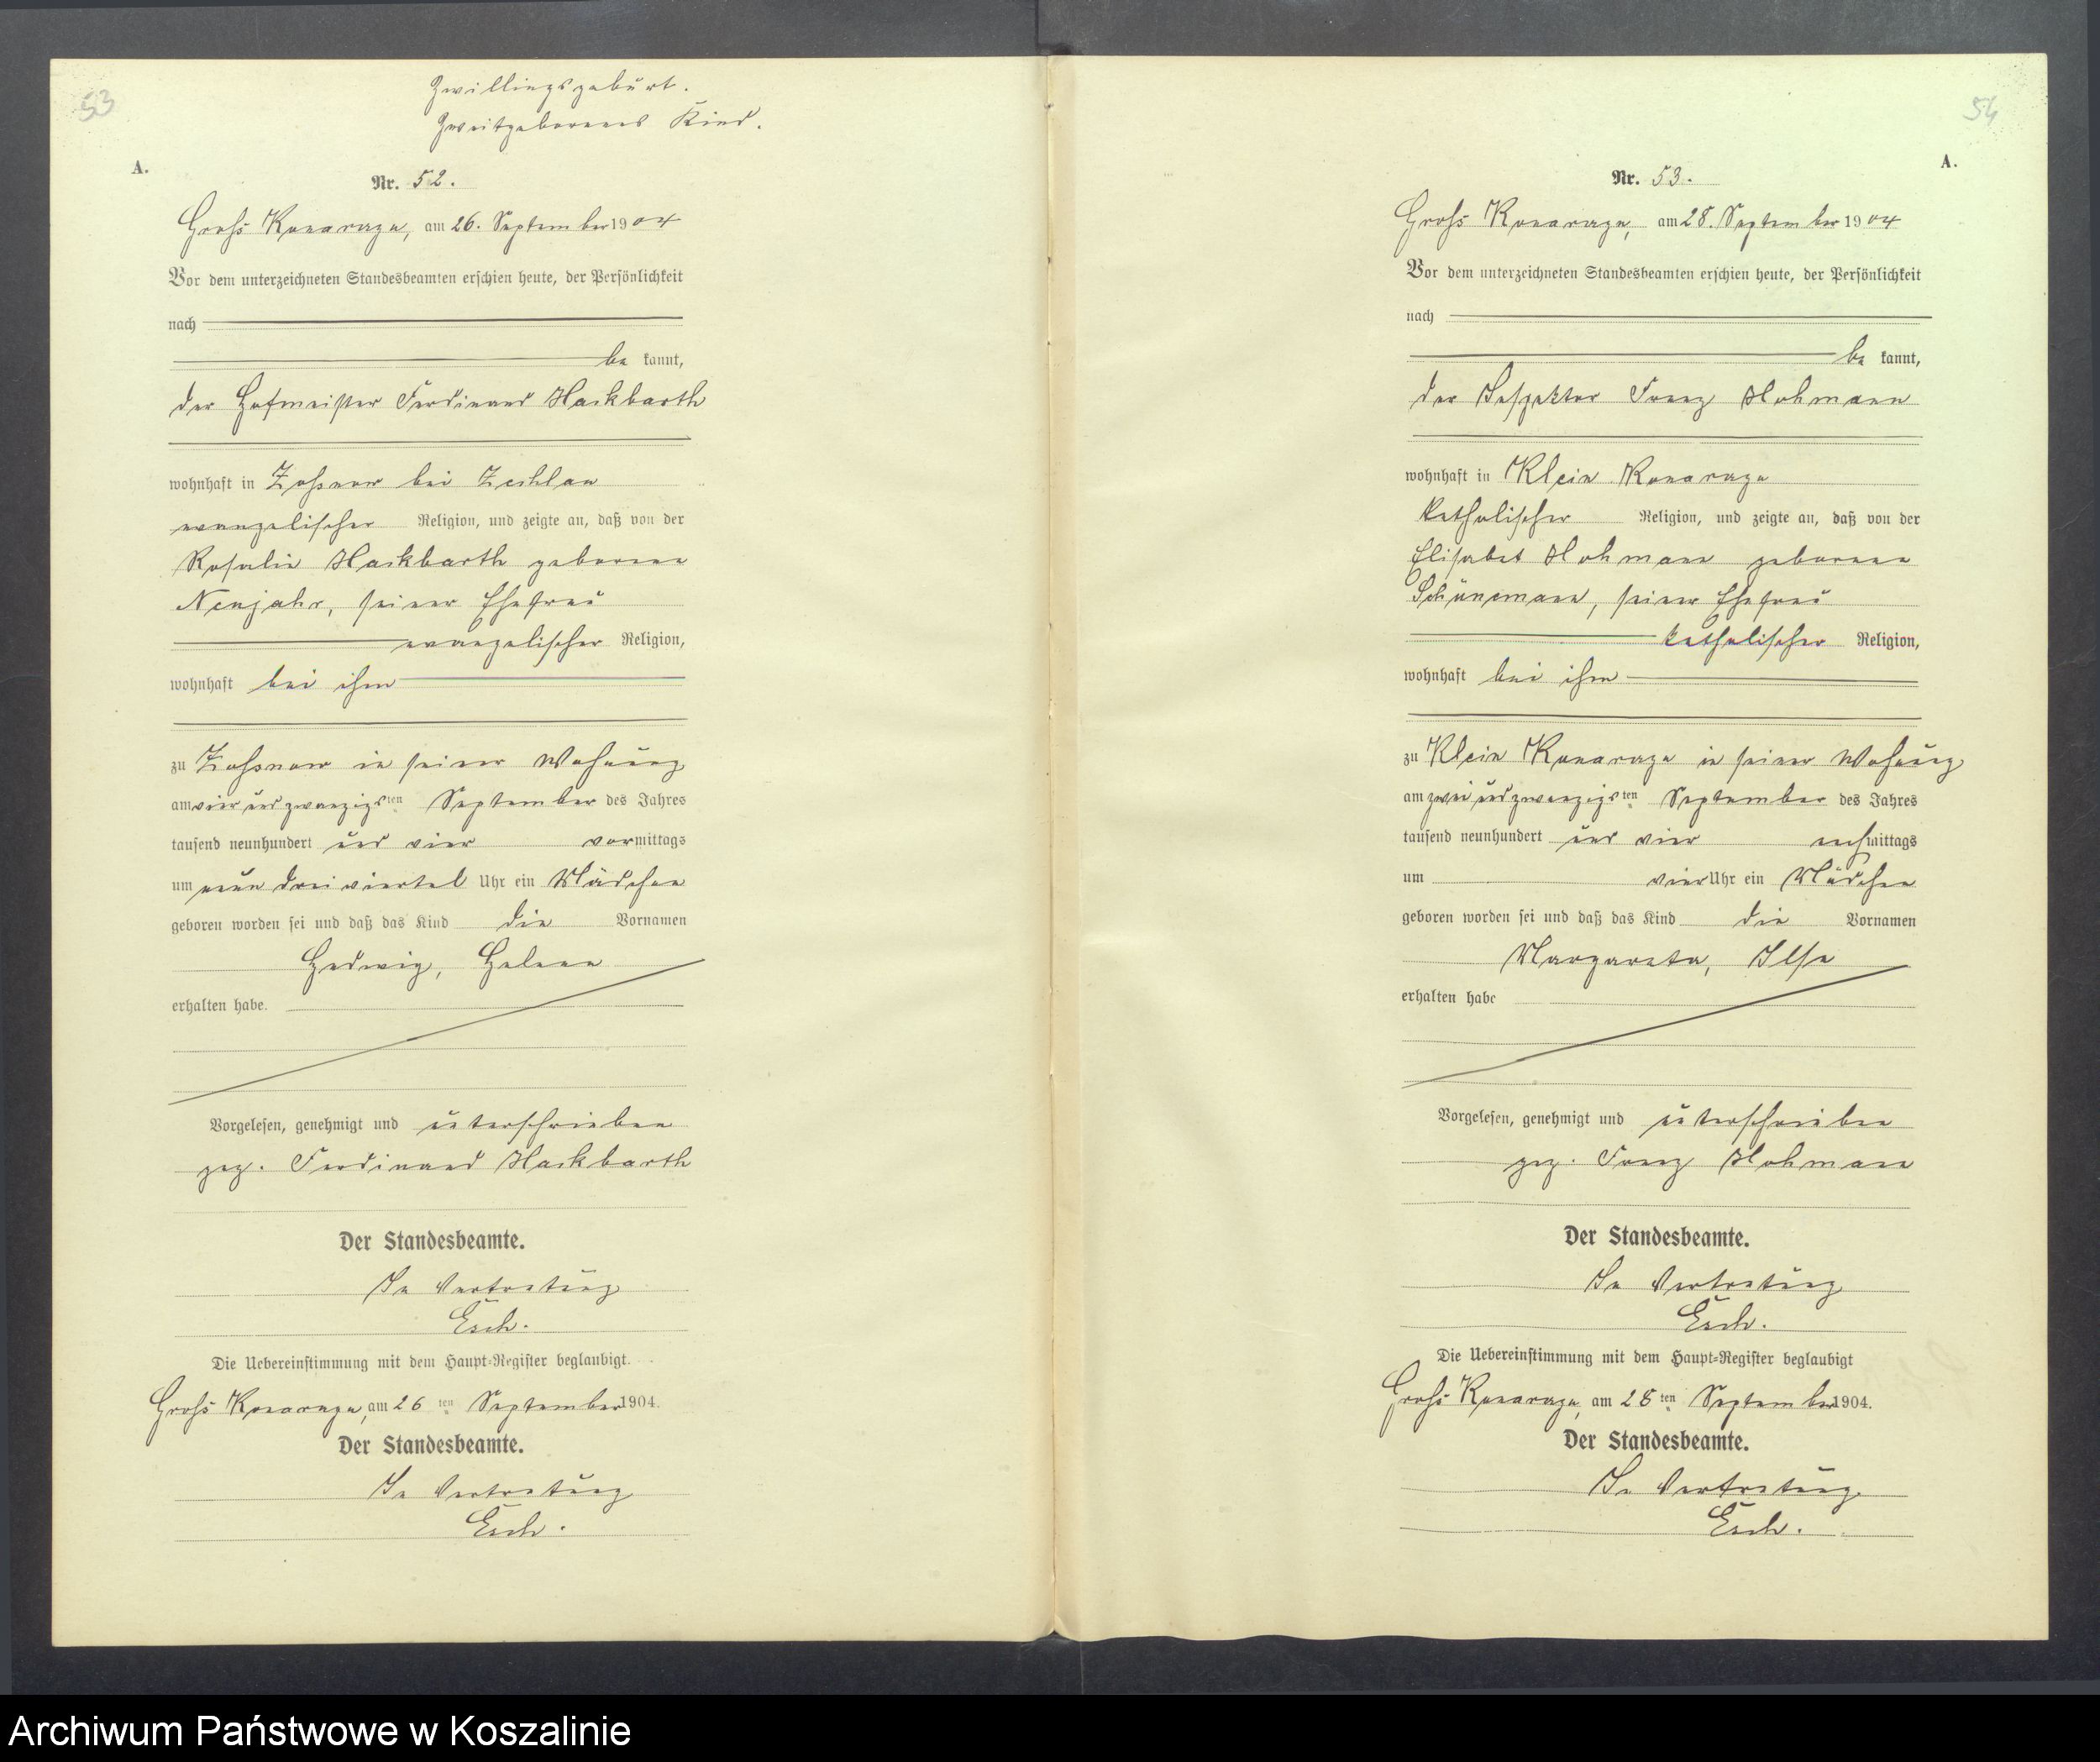 53
Zwillingsgeburt.
Zweitgeborenes Kind.
A.
Nr. 52.
Groß Konarzyn, am 26. September 1904
Vor dem unterzeichneten Standesbeamten erschien heute, der Persönlichkeit
nach
be kannt,
der Hofmeister Ferdinand Hackbarth
wohnhaft in bei
evangelischer Religion, und zeigte an, daß von der
Rosalie Hackbarth geborene
Neujahr, seiner Ehefrau
evangelischer Religion,
wohnhaft bei ihm
zu in seiner Wohnung
am vier und zwanzigsten September des Jahres
tausend neunhundert und vier vormittags
um neun dreiviertel Uhr ein Mädchen
geboren worden sei und daß das Kind die Vornamen
Hedwig, Helene
erhalten habe.
Vorgelesen, genehmigt und unterschrieben
gez. Ferdinand Hackbarth
Der Standesbeamte.
In Vertretung
Esch.
Die Uebereinstimmung mit dem Haupt-Register beglaubigt.
Groß Konarzyn, am 26 ten September 1904.
Der Standesbeamte.
In Vertretung
Esch.
54
A.
Nr. 53.
Groß Konarzyn, am 28. September 1904
Vor dem unterzeichneten Standesbeamten erschien heute, der Persönlichkeit
nach
be kannt,
der Inspektor Franz Hohmann
wohnhaft in Klein Konarzyn
katholischer Religion, und zeigte an, daß von der
Elisabet Hohmann geborene
Schünemann, seiner Ehefrau
katholischer Religion,
wohnhaft bei ihm
zu Klein Konarzyn in seiner Wohnung
am zwei und zwanzigsten September des Jahres
tausend neunhundert und vier nachmittags
um vier Uhr ein Mädchen
geboren worden sei und daß das Kind die Vornamen
Margarete, Ilse
erhalten habe
Vorgelesen, genehmigt und unterschrieben
gez. Franz Hohmann
Der Standesbeamte.
In Vertretung
Esch.
Die Uebereinstimmung mit dem Haupt-Register beglaubigt
Groß Konarzyn, am 28 ten September 1904.
Der Standesbeamte.
In Vertretung
Esch.
Archiwum Państwowe w Koszalinie